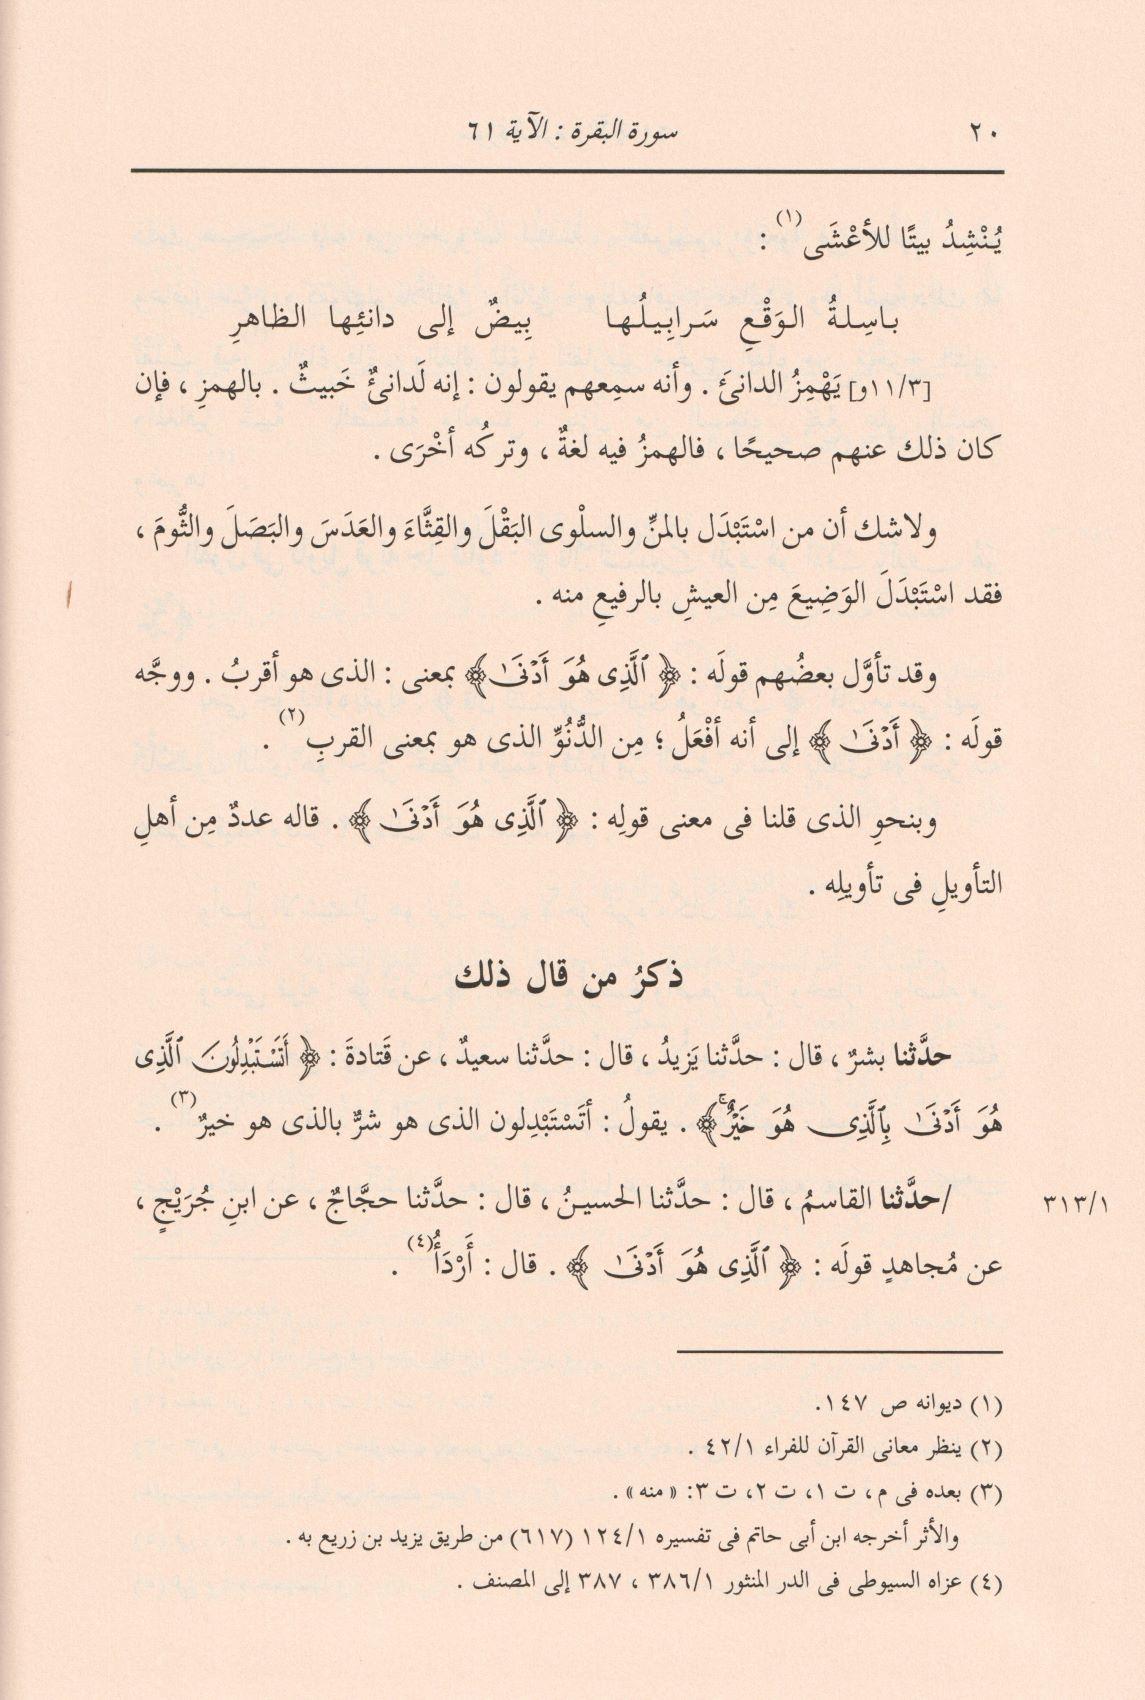 ٢٠
سورة البقرة : الآية ٦١
يُنْشِدُ بيتًا للأعْشَى(١) :
باسِلةُ الوَقْعِ سَرابِيلُها بِيضٌ إلى دانئِها الظاهرِ
[١١/٣و] يَهْمِزُ الدانئَ . وأنه سمِعهم يقولون : إنه لَدانئٌ خَبيثٌ . بالهمزِ ، فإن
كان ذلك عنهم صحيحًا ، فالهمزُ فيه لغةٌ ، وتركُه أخْرَى .
ولاشك أن من اسْتَبْدَل بالمنِّ والسلْوى البَقْلَ والقِثَّاءَ والعَدَسَ والبَصَلَ والثُّومَ ،
فقد اسْتَبْدَلَ الوَضِيعَ مِن العيشِ بالرفيعِ منه .
وقد تأوَّل بعضُهم قولَه : ﴿ ٱلَّذِى هُوَ أَدْنَىٰ﴾ بمعنى : الذى هو أقربُ . ووجَّه
قولَه : ﴿ أَدْنَىٰ ﴾ إلى أنه أفْعَلُ ؛ مِن الدُّنُوِّ الذى هو بمعنى القربِ(٢) .
وبنحوِ الذى قلنا فى معنى قولِه : ﴿ ٱلَّذِى هُوَ أَدْنَىٰ ﴾ . قاله عددٌ مِن أهلِ
التأويلِ فى تأويلِه .
ذكرُ من قال ذلك
حدَّثنا بشرٌ ، قال : حدَّثنا يَزيدُ ، قال : حدَّثنا سعيدٌ ، عن قَتادةَ : ﴿ أَتَسْتَبْدِلُونَ ٱلَّذِى
هُوَ أَدْنَىٰ بِٱلَّذِى هُوَ خَيْرٌۚ﴾ . يقولُ : أتَسْتَبْدِلون الذى هو شرٌّ بالذى هو خيرٌ(٣) .
/حدَّثنا القاسمُ ، قال : حدَّثنا الحسينُ ، قال : حدَّثنا حجَّاجٌ ، عن ابنِ جُرَيْجٍ ،
٣١٣/١
عن مُجاهدٍ قولَه : ﴿ ٱلَّذِى هُوَ أَدْنَىٰ ﴾ . قال : أَرْدَأُ(٤) .
(١) ديوانه ص ١٤٧.
(٢) ينظر معانى القرآن للفراء ٤٢/١ .
(٣) بعده فى م، ت ١، ت ٢، ت ٣: «منه» .
والأثر أخرجه ابن أبى حاتم فى تفسيره ١٢٤/١ (٦١٧) من طريق يزيد بن زريع به .
(٤) عزاه السيوطى فى الدر المنثور ٣٨٦/١ ، ٣٨٧ إلى المصنف .